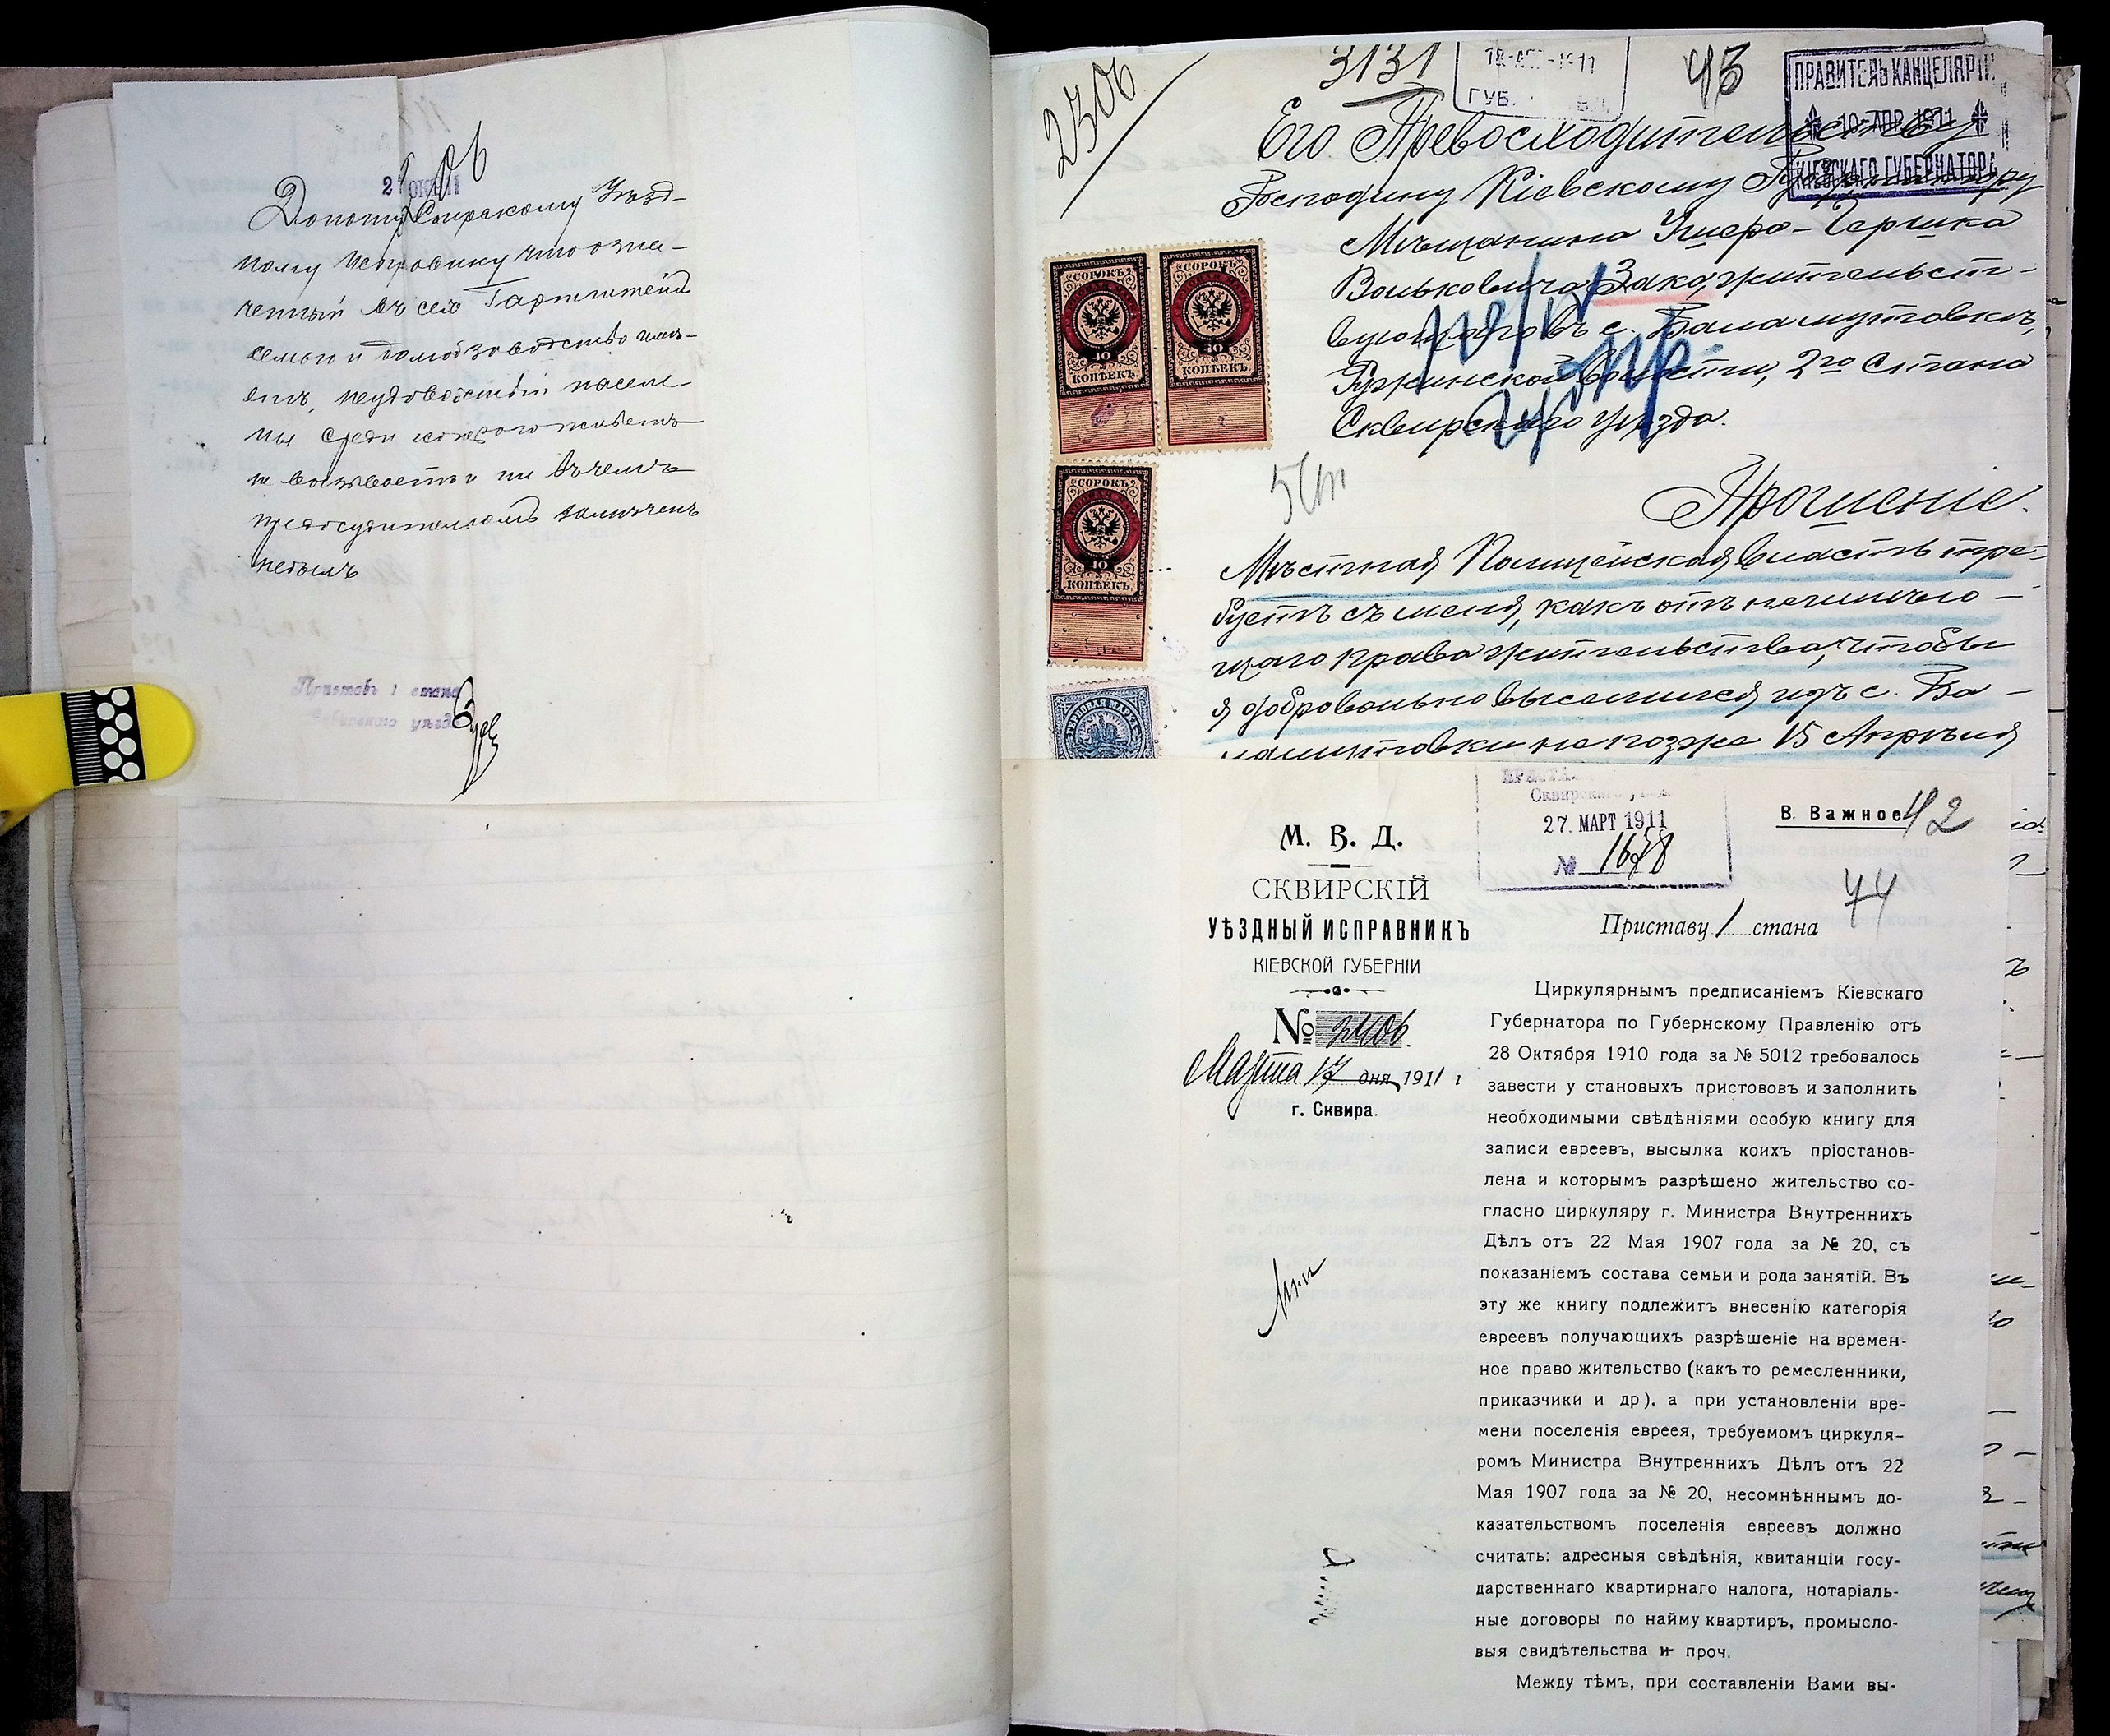 2306
21 ОКТ 11
Доношу Сквирскому Уѣзд-
ному Исправнику что озна-
ченный въ селѣ
семью и домообзаводство имѣ-
етъ, неудовольствій населе-
нія среди котораго живетъ
не вызываетъ и ни въ чемъ
предосудительномъ замѣченъ
небылъ
Приставъ 1 стана
Сквирскаго уѣзда
2306
3131
18 АПР 1911
ГУБ.
45
ПРАВИТЕЛЬ КАНЦЕЛЯРІИ
10 АПР. 1911
КІЕВСКАГО ГУБЕРНАТОРА
Его Превосходительству
Господину Кіевскому Губернатору
Мѣщанина Ушера-Гершка
Вольковича Зако, жительст-
вующаго въ с. Баламутовкѣ,
Ружинской волости, 2го Стана
Сквирскаго уѣзда.
СОРОКЪ
40
КОПѢЕКЪ
СОРОКЪ
40
КОПѢЕКЪ
СОРОКЪ
40
КОПѢЕКЪ
ГЕРБОВАЯ МАРКА
Прошеніе.
Мѣстная Полицейская власть тре-
буетъ съ меня, какъ отъ неимѣю-
щаго права жительства, чтобы
я добровольно выселился изъ с. Ба-
ламутовки не позже 15 Апрѣля
М. В. Д.
СКВИРСКІЙ
УѢЗДНЫЙ ИСПРАВНИКЪ
КІЕВСКОЙ ГУБЕРНІИ
№ 2406.
Марта 17 дня 1911 г
г. Сквира.
27. МАРТ 1911
№ 1678
В. Важное
42
44
Приставу 1 стана
Циркулярнымъ предписаніемъ Кіевскаго
Губернатора по Губернскому Правленію отъ
28 Октября 1910 года за № 5012 требовалось
завести у становыхъ пристовоъ и заполнить
необходимыми свѣдѣніями особую книгу для
записи евреевъ, высылка коихъ пріостанов-
лена и которымъ разрѣшено жительство со-
гласно циркуляру г. Министра Внутреннихъ
Дѣлъ отъ 22 Мая 1907 года за № 20, съ
показаніемъ состава семьи и рода занятій. Въ
эту же книгу подлежитъ внесенію категорія
евреевъ получающихъ разрѣшеніе на времен-
ное право жительство (какъ то ремесленники,
приказчики и др), а при установленіи вре-
мени поселенія еврeея, требуемомъ циркуля-
ромъ Министра Внутреннихъ Дѣлъ отъ 22
Мая 1907 года за № 20, несомнѣннымъ до-
казательствомъ поселенія евреевъ должно
считать: адресныя свѣдѣнія, квитанціи госу-
дарственнаго квартирнаго налога, нотаріаль-
ные договоры по найму квартиръ, промысло-
выя свидѣтельства и проч.
Между тѣмъ, при составленіи Вами вы-